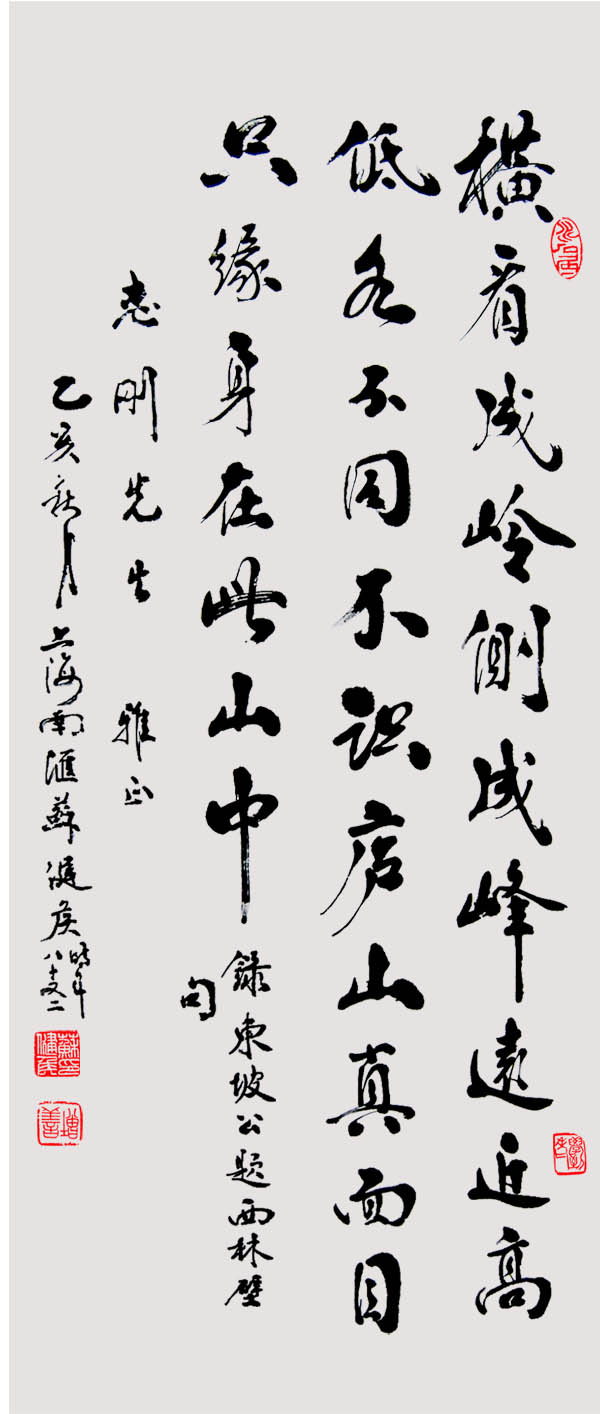 橫看成岭側成峰遠近高
低各不同不识庐山真面目
只緣身在此山中 録東坡公題西林壁
句
惠刚先生 雅正
乙亥秋月上海南滙蘇健侯時年八十又二